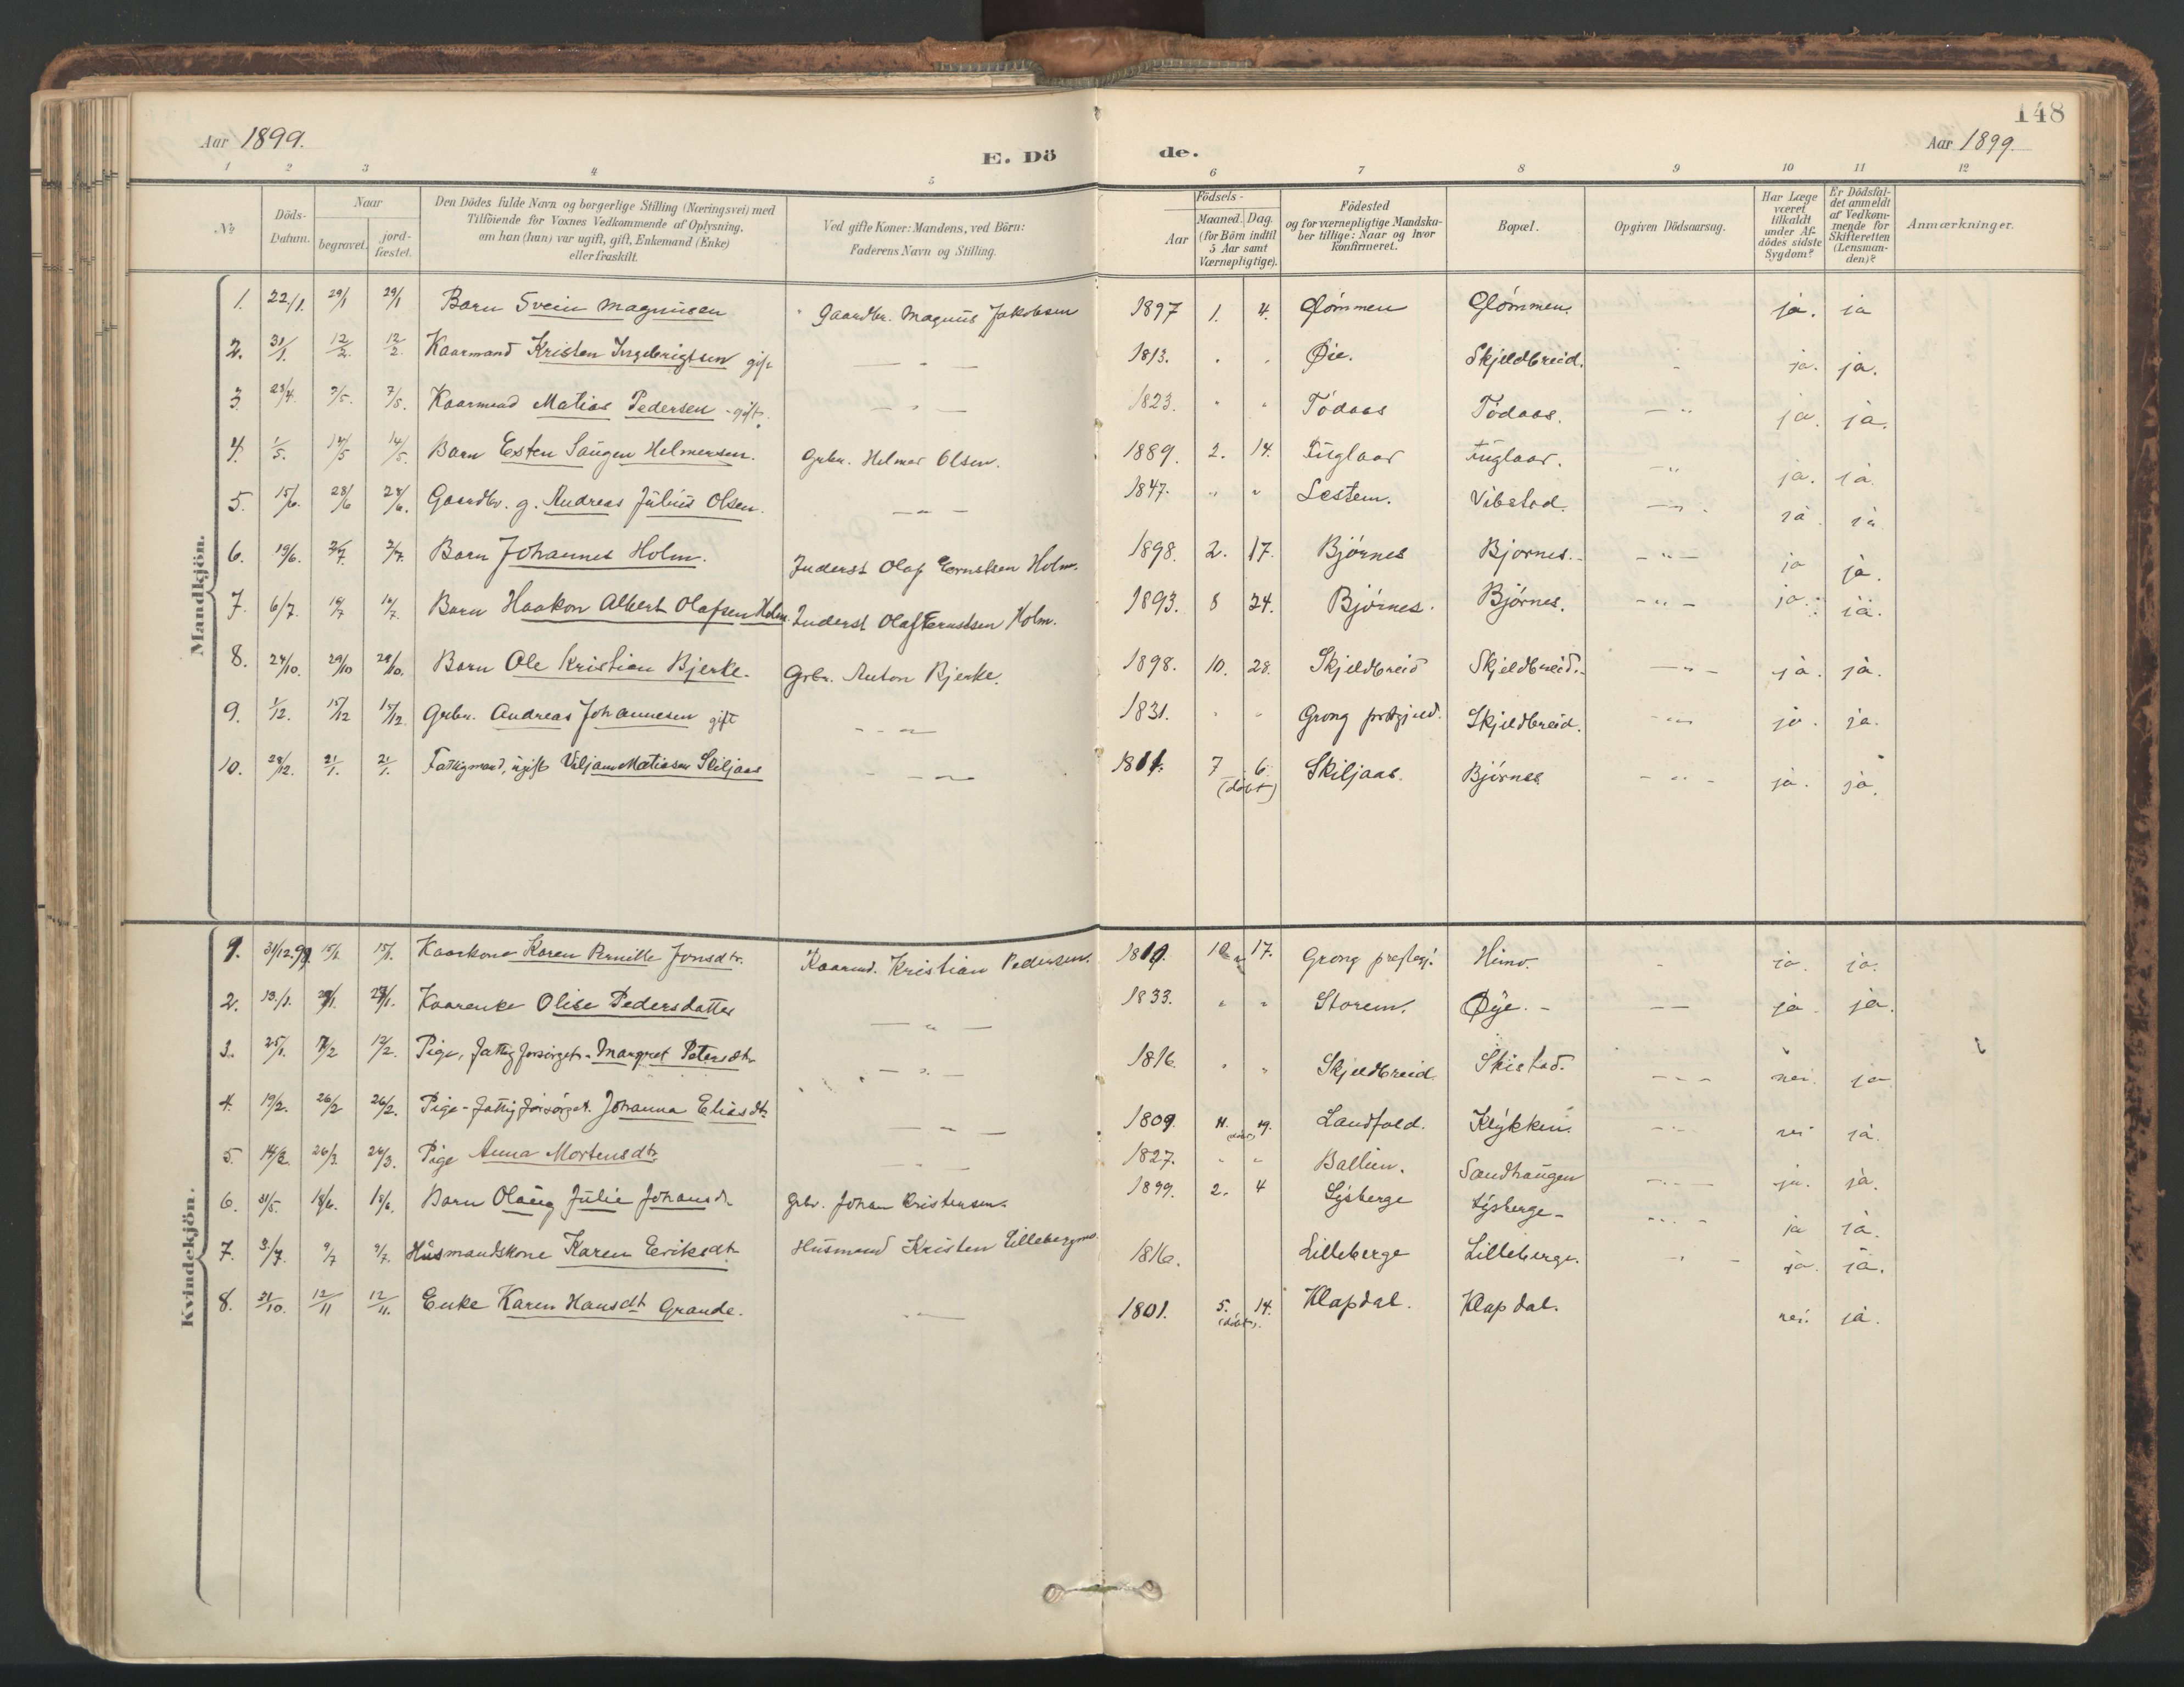 148
Aar 1899.
E. Dö
de.
Aar 1899.
1 2 3 4 5 6 7 8 9 10 11 12
No
Döds-
Datum.
Naar
begravet.
jord-
fæstet.
Den Dödes fulde Navn og borgerlige Stilling (Næringsvei) med
Tilföiende for Voxnes Vedkommende af Oplysning,
om han (hun) var ugift, gift, Enkemand (Enke)
eller fraskilt.
Ved gifte Koner: Mandens, ved Börn:
Faderens Navn og Stilling.
Födsels-
Aar
Maaned. Dag.
(for Börn indtil
5 Aar samt
Værnepligtige).
Födested
og for værnepligtige Mandska-
ber tillige: Naar og hvor
konfirmeret.
Bopæl.
Opgiven Dödsaarsag.
Har Læge
været
tilkaldt
under Af-
dödes sidste
Sygdom?
Er Dödsfal-
det anmeldt
af Vedkom-
mende for
Skifteretten
(Lensman-
den)?
Anmærkninger.
Mandkjön.
1. 22/1. 29/1 29/1 Barn Svein Magnusen Gaardbr. Magnus Jakobsen 1897 1. 4. Glömmen Glömmen. ja. ja
2. 31/1. 12/2. 12/2. Kaarmand Kristen Ingebrigtsen gift — " — 1813. " " Øie. Skjeldbreid. ja. ja.
3. 23/4. 7/5. 7/5. Kaarmand Matias Pedersen - gift. — " — 1823. " " Tödaas Tödaas. — " ja. ja.
4. 1/5. 14/5 14/5. Barn Esten Saugen Helmersen. Grbr. Helmer Olsen. 1889. 2. 14. Fuglaar Fuglaar. — " ja. ja.
5. 15/6. 28/6 28/6. Gaardbr. g. Andreas Julius Olsen. — " — 1847. " " Lestem. Vibstad. — " ja. ja
6. 19/6. 2/7. 2/7. Barn Johannes Holm. Inderst Olaf Ernstsen Holm. 1898. 2. 17. Björnes Bjornes. — " — ja ja.
7. 6/7. 16/7 16/7. Barn Haakon Albert Olafsen Holm. Inderst Olaf Ernstsen Holm. 1893. 8 24. Björnes. Björnes. — " — ja. ja.
8. 24/10. 29/10 29/10. Barn Ole Kristian Bjerke. Grbr. Anton Bjerke. 1898. 10. 28. Skjeldbreid Skjeldbreid. — " — ja. ja.
9. 1/12. 15/12 15/12. Grbr. Andreas Johannesen gift — " — 1831. " " Grong prstgjeld. Skjeldbreid. — " ja. ja.
10. 28/12. 21/1. 21/1. Fattigmand, ugift Viljam Matiasen Skiljaas — " — 1811. 7 6. (döbt) Skiljaas. Björnes. — " — ja. ja.
Kvindekjön.
1. 31/12.98. 15/1. 15/1. Kaarkone Karen Pernille Jonsdtr. Kaarmd. Kristian Pedersen. 1819. 10 17. Grong prestegj. Himo. ja. ja.
2. 13./1. 29/1. 29/1. Kaarenke Olise Pedersdatter — " — 1833. " " Storem. Øye. — — ja. ja.
3. 25/1. 12/2. Pige, fattigforsörget - Margret Petersdtr. — " — 1816. " " Skjeldbreid. Skistad. — nei. ja
4. 19/2. 26/2 26/2. Pige - fattigforsörget. Johanna Eliasdtr. — " — 1809. 11. 19. (döbt) Landfald. Klykken. — nei ja.
5. 14/3. 26/3. 26/3. Pige Anna Mortensdtr. — " — 1827. " " Ballien. Sandhaugen — ja. ja.
6. 31/5. 18/6. 18/6. Barn Olaug Julie Johansdr. Grbr. Johan Kristensen. 1899. 2. 4 Lysberge Lysberge — ja ja.
7. 3./7. 9/7 9/7. Husmandskone Karen Eriksdtr. Husmand Kristen Lilleberge 1816. Lilleberge Lilleberge. ja. ja.
8. 31/10. 12/11 12/11. Enke Karen Hansdt Grande. — " — 1801. 5. 14. (döbt). Klapdal. Klapdal. nei. ja.